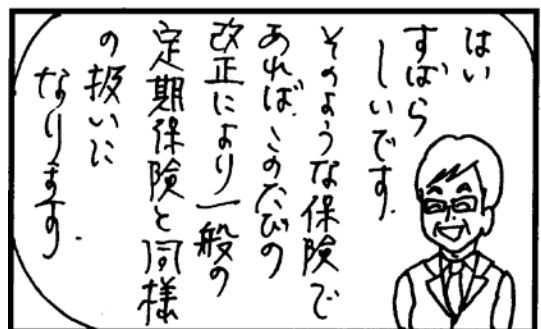 はい
すばら
しいです.
そのような保険で
あれば、このたびの
改正により一般の
定期保険と同様
の扱いに
なります.